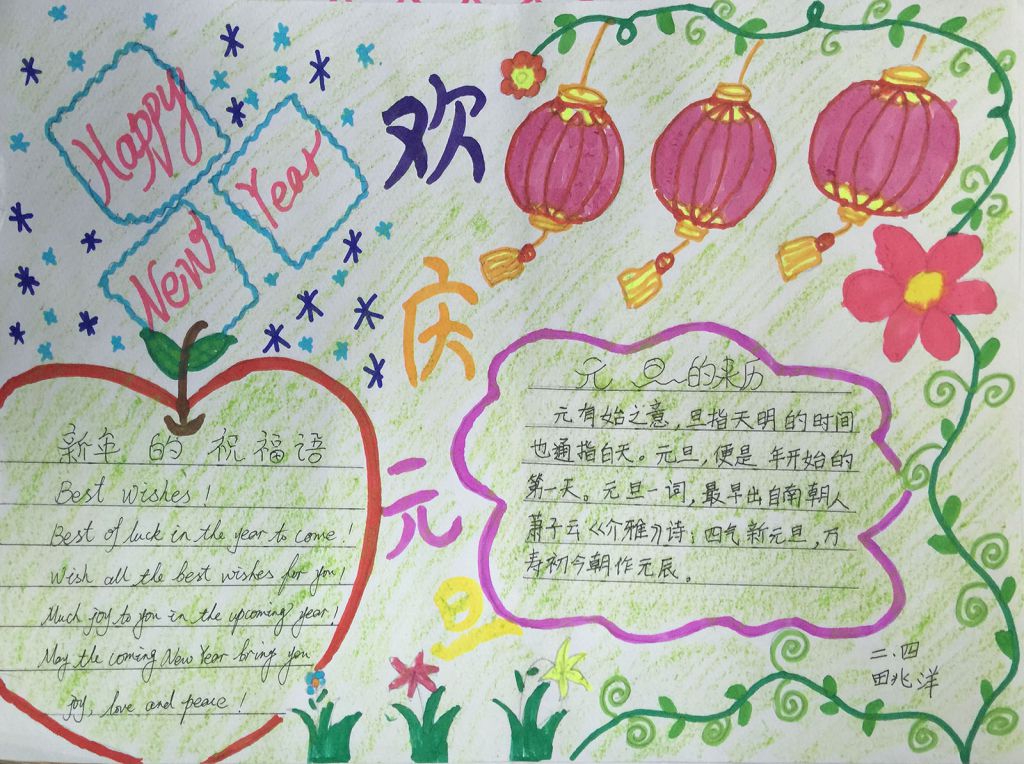 Happy
New
Year
欢
庆
元
旦
新年的祝福语
Best wishes!
Best of luck in the year to come!
Wish all the best wishes for you!
Much joy to you in the upcoming year!
May the coming New Year brings you
joy, love and peace!
元旦的来历
元有始之意,旦指天明的时间
也通指白天。元旦,便是 年开始的
第一天。元旦一词,最早出自南朝人
萧子云《介雅》诗:四气新元旦,万
寿初今朝作元辰。
二.四
田兆洋